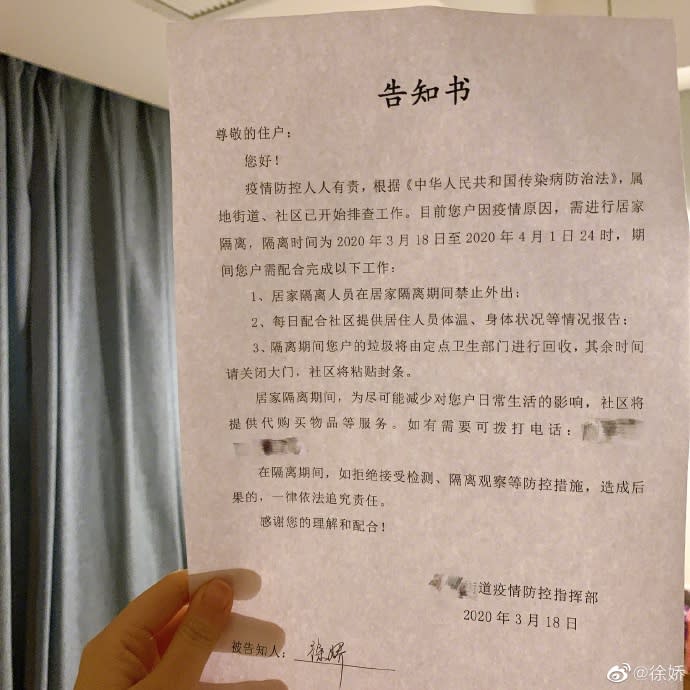 告知书
尊敬的住户：
您好！
疫情防控人人有责，根据《中华人民共和国传染病防治法》，属
地街道、社区已开始排查工作。目前您户因疫情原因，需进行居家
隔离，隔离时间为 2020 年 3 月 18 日至 2020 年 4 月 1 日 24 时，期
间您户需配合完成以下工作：
1、居家隔离人员在居家隔离期间禁止外出；
2、每日配合社区提供居住人员体温、身体状况等情况报告；
3、隔离期间您户的垃圾将由定点卫生部门进行回收，其余时间
请关闭大门，社区将粘贴封条。
居家隔离期间，为尽可能减少对您户日常生活的影响，社区将
提供代购买物品等服务。如有需要可拨打电话：
在隔离期间，如拒绝接受检测、隔离观察等防控措施，造成后
果的，一律依法追究责任。
感谢您的理解和配合！
街道疫情防控指挥部
2020 年 3 月 18 日
被告知人：徐娇
@徐娇